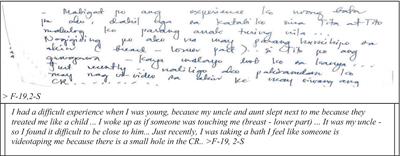 - Mabigat po ang experience ko noong bata
pa ako, dahil nga sa katabi ko sina Tita at Tito
matulog ko parang anak turing nila ...
Nagigising po ako na may parang humihipo sa
akin ( breast - lower part ) .. si Tito po ang
kaya malayo loob ko sa kanya ...
Just recently, naliligo ako pakiramdam ko
may nag video sa akin may siwang ang
CR ...
> F-19,2-S
I had a difficult experience when I was young, because my uncle and aunt slept next to me because they
treated me like a child ... I woke up as if someone was touching me (breast - lower part) ... It was my uncle -
so I found it difficult to be close to him... Just recently, I was taking a bath I feel like someone is
videotaping me because there is a small hole in the CR.. >F-19, 2-S